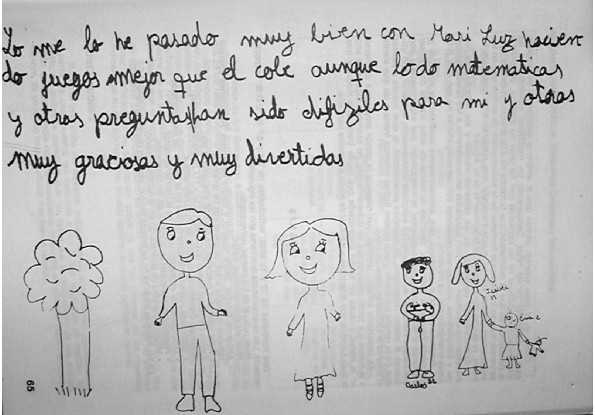 Yo me lo he pasado muy bien con Mari Luz hacien
do juegos mejor que el cole aunque lodo matematicas
y otras preguntas han sido difiziles para mi y otoras
muy graciosas y muy divertidas
Carlos
65